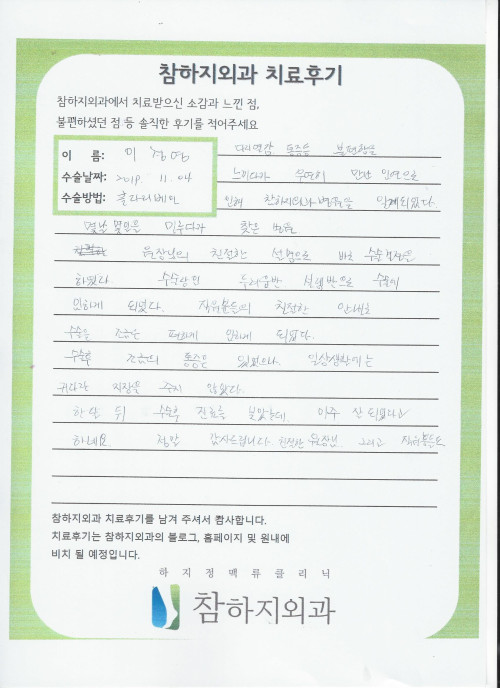 참하지외과 치료후기
참하지외과에서 치료받으신 소감과 느낀 점,
불편하셨던 점 등 솔직한 후기를 적어주세요
이 름: 이정명
수술날짜: 2019. 11. 04
수술방법: 클라리베인
다리 통증 불편함을
느끼다가 우연히 만난 인연으로
인해 참하지외과 병원을 알게되었다.
몇날 몇일을 미루다가 찾은 병원
원장님의 친절한 설명으로 바로 수술 을
하였다 수술당일 두려움반 설렘반으로 수술이
하게 되었다. 직원분들의 친절한 안내로
수술을 조금은 편하게 하게 되었다.
수술후 조금의 통증은 있었으나 일상생활에는
커다란 지장을 주지 않았다.
한 달 뒤 수술후 진료를 보았는데. 아주 잘 되었다고
하네요. 정말 감사드립니다. 친절한 원장님. 그리고 직원분들도
참하지외과 치료후기를 남겨 주셔서 감사합니다.
치료후기는 참하지외과의 블로그, 홈페이지 및 원내에
비치 될 예정입니다.
하지정맥류클리닉
참하지외과